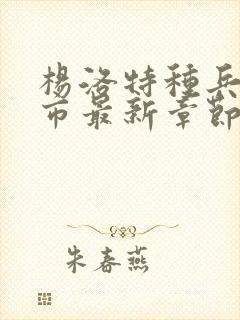 楊洛特種兵
市最新章節
朱春燕